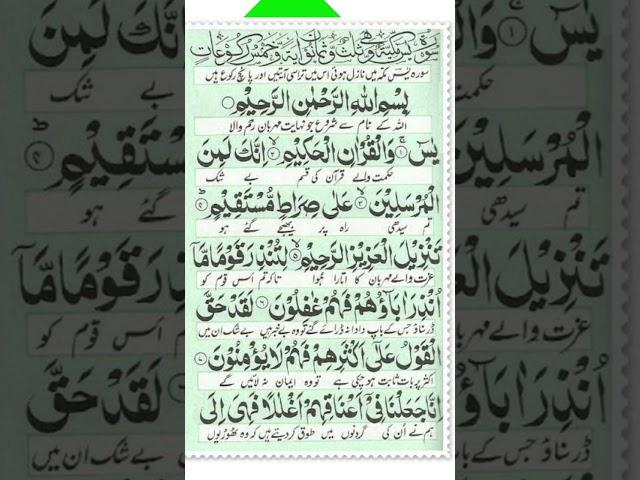 سورة يس مكية وهي ثلث وثمانون اية وخمس ركوعات
سورہ یٰس مکہ میں نازل ہوئی اس میں تراسی آیتیں اور پانچ رکوع ہیں
بِسْمِ اللهِ الرَّحْمٰنِ الرَّحِيْمِ
اللہ کے نام سے شروع جو نہایت مہربان رحم والا
يٰسٓ ۚ‏﴿۱﴾ وَالْقُرْاٰنِ الْحَكِيْمِ ۙ‏﴿۲﴾ اِنَّكَ لَمِنَ
حکمت والے قرآن کی قسم بے شک
الْمُرْسَلِيْنَ ۙ‏﴿۳﴾ عَلٰى صِرَاطٍ مُّسْتَقِيْمٍ ؕ‏﴿۴﴾
تم سیدھی راہ پر بھیجے گئے ہو
تَنْزِيْلَ الْعَزِيْزِ الرَّحِيْمِ ۙ‏﴿۵﴾ لِتُنْذِرَ قَوْمًا مَّاۤ
عزت والے مہربان کا اتارا ہوا تاکہ تم اس قوم کو
اُنْذِرَ اٰبَآؤُهُمْ فَهُمْ غٰفِلُوْنَ ‏﴿۶﴾ لَقَدْ حَقَّ
ڈر سناؤ جس کے باپ دادا نہ ڈرائے گئے تو وہ بے خبر ہیں بے شک ان میں
الْقَوْلُ عَلٰٓى اَكْثَرِهِمْ فَهُمْ لَا يُؤْمِنُوْنَ ‏﴿۷﴾
اکثر پر بات ثابت ہو چکی ہے تو وہ ایمان نہ لائیں گے
اِنَّا جَعَلْنَا فِيْۤ اَعْنَاقِهِمْ اَغْلٰلًا فَهِيَ اِلَى
ہم نے ان کی گردنوں میں طوق کر دیئے ہیں کہ وہ ٹھوڑیوں